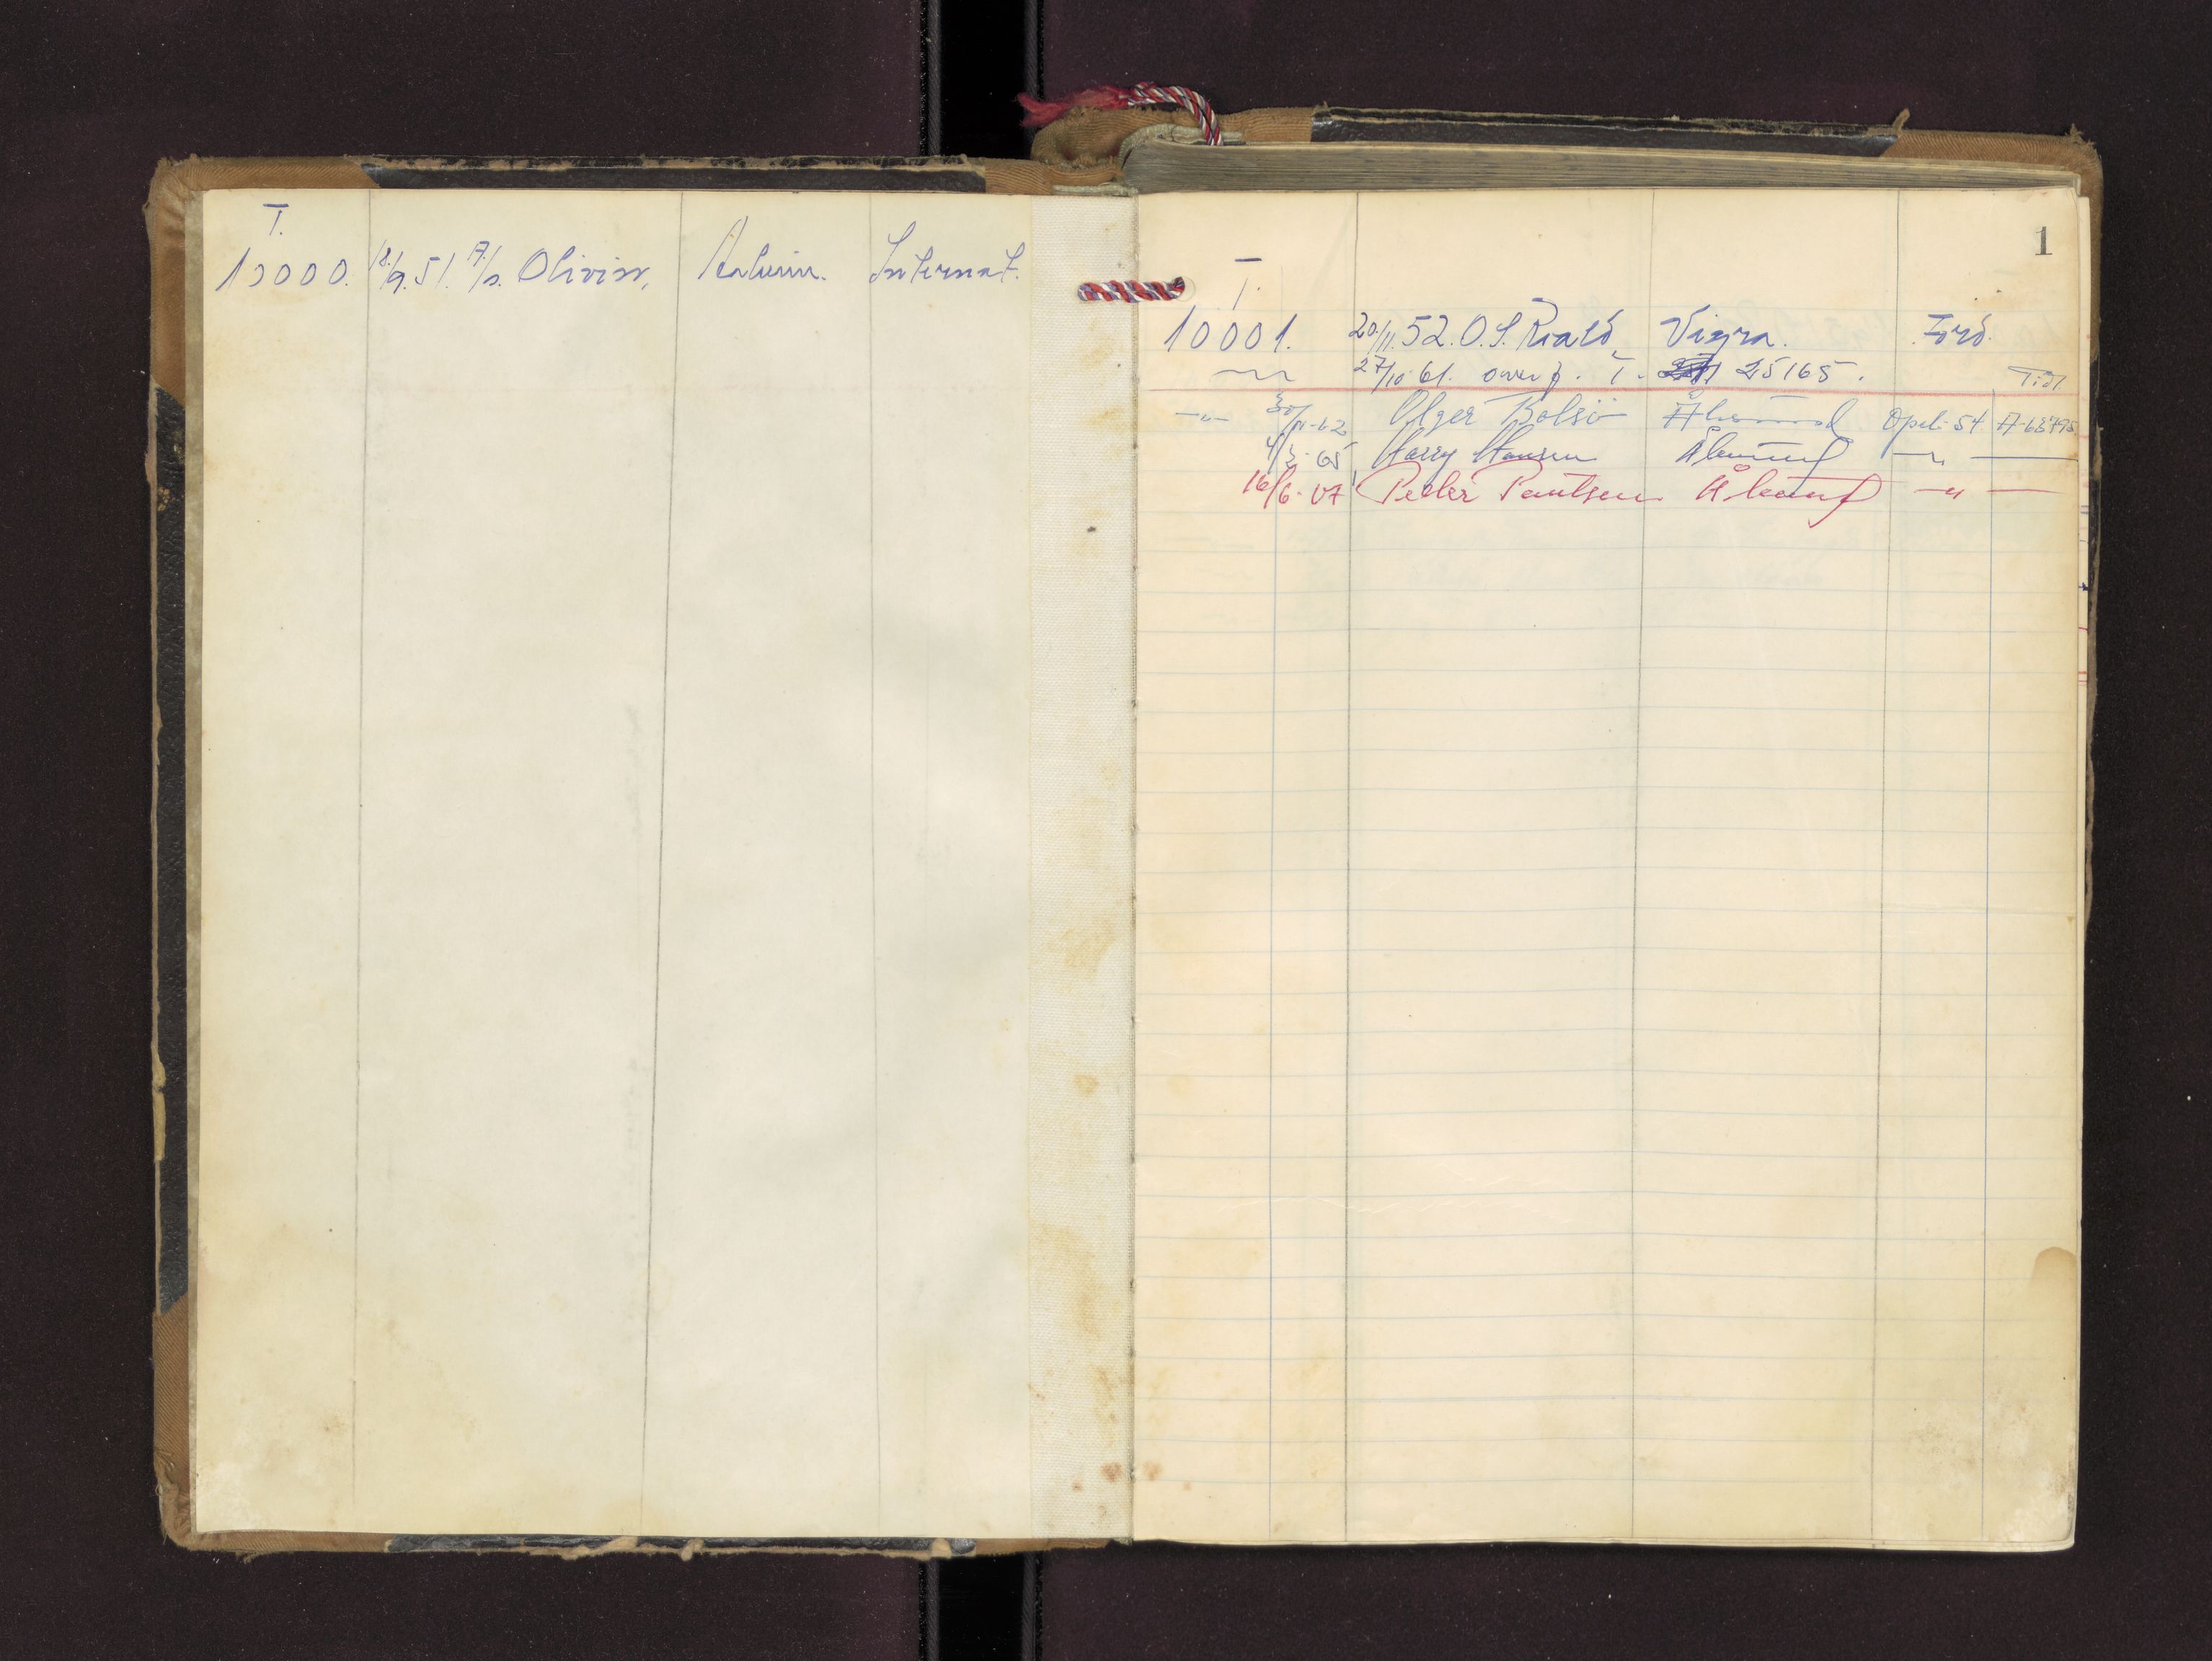 T.
10000. 18/9.51. A/s. Olivin, Aaheim. Internat.
1
T.
10001. 20/11.52. O. S. Roald, Vigra. Ford.
27/10-61. overf. T. 25165.
-"- 30/11-62 Olger Bolsö Ålesund Opel-54 A-63495
4/3-65 Harry Hansen Ålesund -"- —
16/6-67 Petter Paulsen Ålesund -"- —